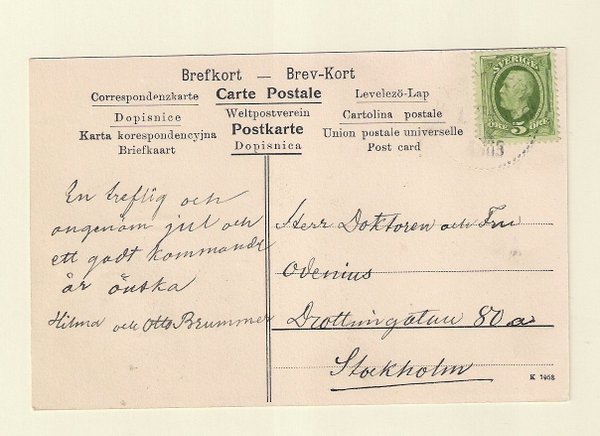 Brefkort — Brev-Kort
Correspondenzkarte Carte Postale Levelező-Lap
Dopisnice Weltpostverein Cartolina postale
Karta korespondencyjna Postkarte Union postale universelle
Briefkaart Dopisnica Post card
SVERIGE
ÖRE 5 ÖRE
En treflig och
angenäm jul och
ett godt kommande
år önska
Hilma och Otto Brummer
Herr Doktoren och Fru
Odenius
Drottningatan 80 a
Stockholm
K 1958